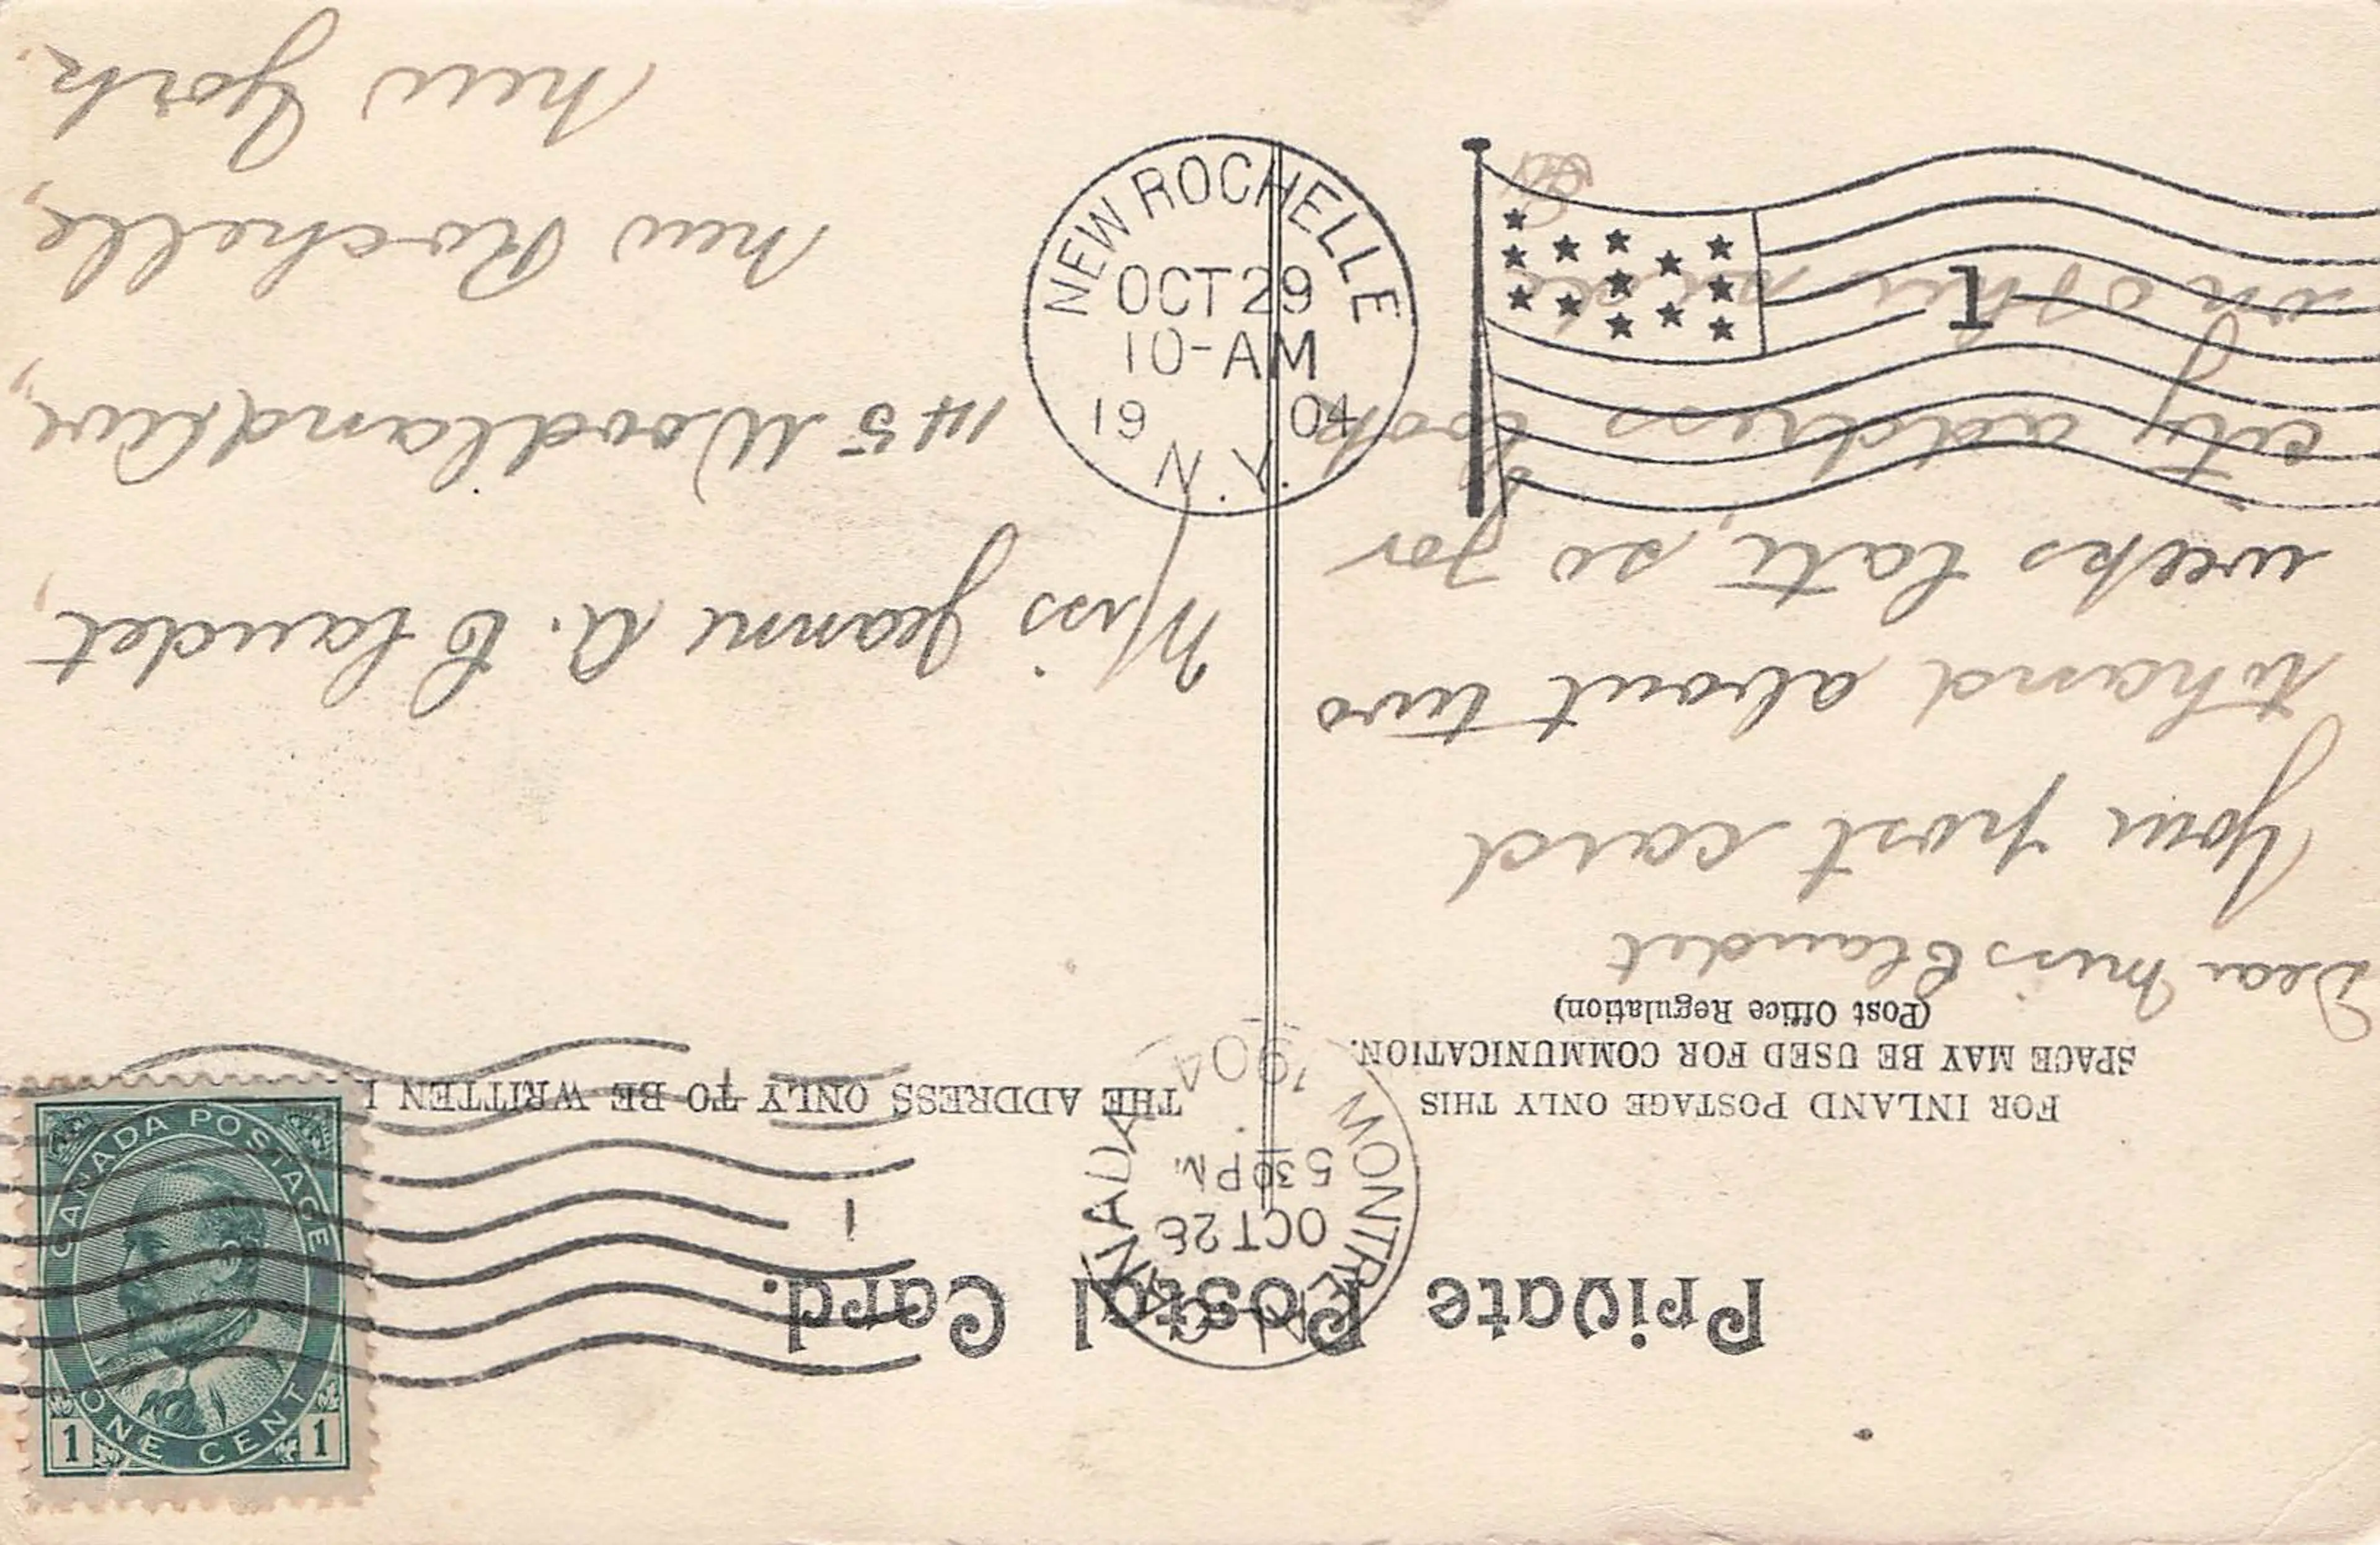 Private Postal Card.
FOR INLAND POSTAGE ONLY THIS
SPACE MAY BE USED FOR COMMUNICATION.
(Post Office Regulation)
THE ADDRESS ONLY TO BE WRITTEN
MONTREAL CANADA
OCT 28
5 30 PM
1904
1
CANADA POSTAGE
ONE CENT
1 1
Dear Miss Claudet
Your post card
to hand about two
weeks late, so for
city address look
on other side
Miss Jeanne A. Claudet,
145 Woodland Ave,
New Rochelle,
New York.
NEW ROCHELLE
OCT 29
10-AM
1904
N.Y.
1